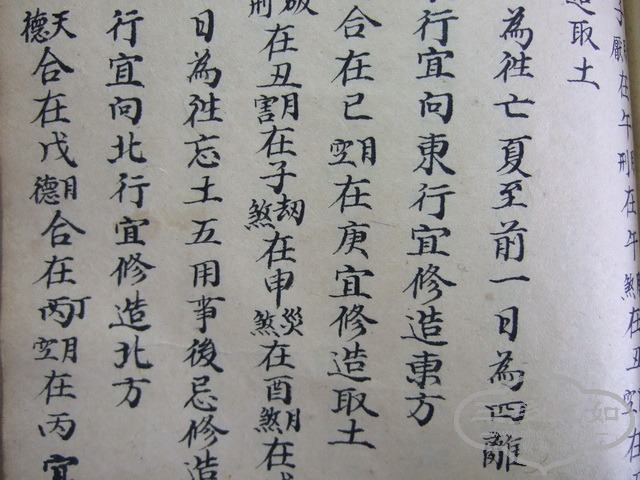 厭在午刑在午煞在丑空在
造取土
為徃亡夏至前一日為四離
行宜向東行宜修造東方
合在巳月空在庚宜修造取土
在丑月害在子劫煞在申災煞在酉月煞在
日為徃忘土五用事後忌修造
行宜向北行宜修造北方
天德合在戊月德合在丁丙月空在丙宜